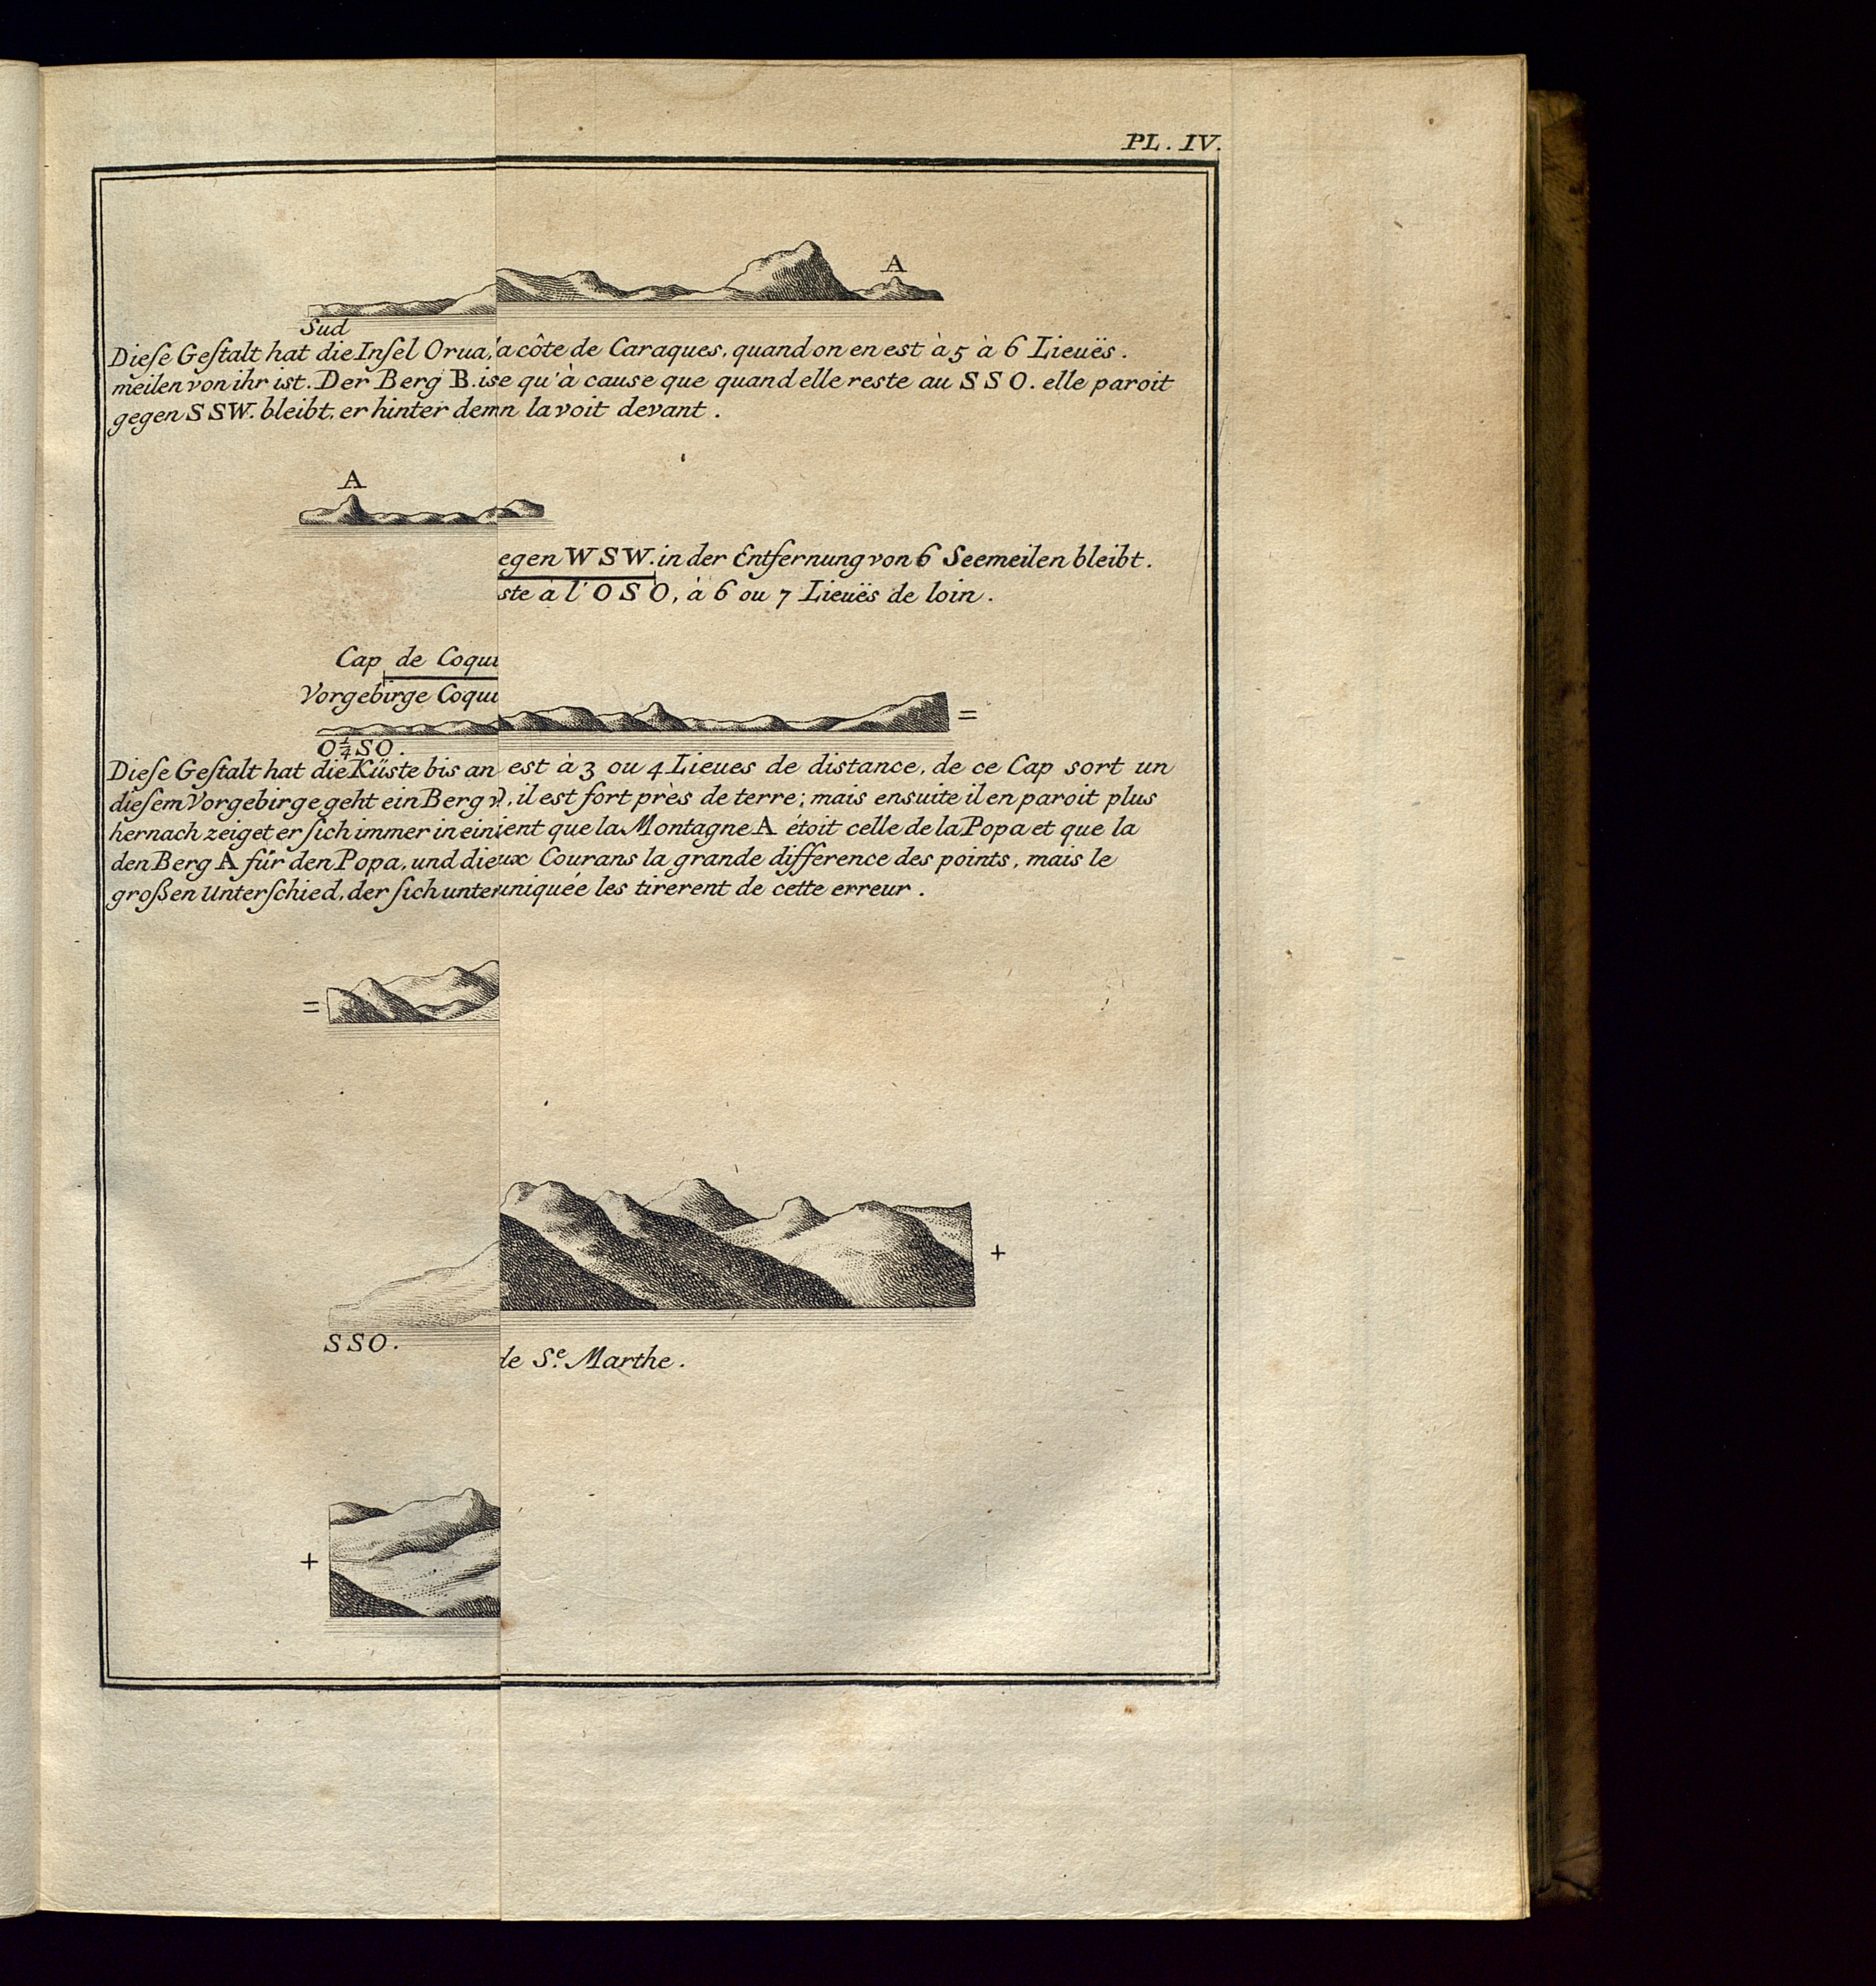 PL. IV.
A
Sud
Dieſe Geſtalt hat die Inſel Orua, a côte de Caraques, quand on en est à 5 à 6 Lieuës.
meilen von ihr ist. Der Berg B. ise qu'à cause que quand elle reste au S S O. elle paroit
gegen S SW. bleibt, er hinter dem n la voit devant.
A
egen W SW. in der Entfernung von 6 Seemeilen bleibt.
ste à l'O S O, à 6 ou 7 Lieuës de loin.
Cap de Coqui
Vorgebirge Coqui
=
O¼SO.
Dieſe Geſtalt hat die Küste bis an est à 3 ou 4 Lieues de distance, de ce Cap sort un
dieſem Vorgebirge geht ein Berg , il est fort près de terre; mais ensuite il en paroit plus
hernach zeiget er ſich immer in ein ient que la Montagne A étoit celle de la Popa et que la
den Berg A für den Popa, und die ux Courans la grande difference des points, mais le
großen Unterſchied, der ſich unter uniquée les tirerent de cette erreur.
=
+
SSO.
de Sᵉ. Marthe.
+